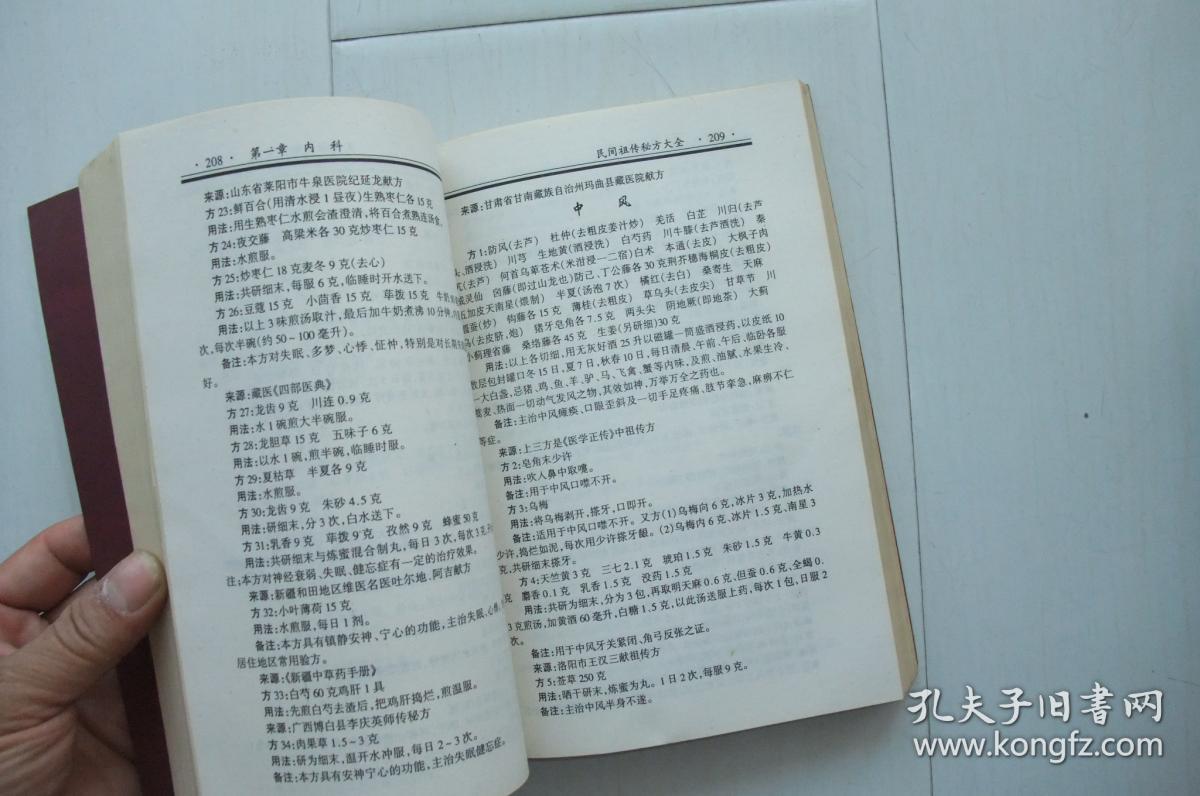 ·208· 第一章 内 科
来源:山东省莱阳市牛泉医院纪延龙献方
方23:鲜百合(用清水浸1昼夜)生熟枣仁各15克
用法:用生熟枣仁水煎会渣澄清,将百合煮熟连汤食。
方24:夜交藤 高粱米各30克炒枣仁15克
用法:水煎服。
方25:炒枣仁18克麦冬9克(去心)
用法:共研细末,每服6克,临睡时开水送下。
方26:豆蔻15克 小茴香15克 荜拨15克 牛奶
用法:以上3味煎汤取汁,最后加牛奶煮沸10分钟,
次,每次半碗(约50~100毫升)。
备注:本方对失眠、多梦、心悸、怔忡,特别是对长期
好。
来源:藏医《四部医典》
方27:龙齿9克 川连0.9克
用法:水1碗煎大半碗服。
方28:龙胆草15克 五味子6克
用法:以水1碗,煎半碗,临睡时服。
方29:夏枯草 半夏各9克
用法:水煎服。
方30:龙齿9克 朱砂4.5克
用法:研细末,分3次,白水送下。
方31:乳香9克 荜拨9克 孜然9克 蜂蜜50克
用法:共研细末与炼蜜混合制丸,每日3次,每次3克,
注:本方对神经衰弱、失眠、健忘症有一定的治疗效果。
来源:新疆和田地区维医名医吐尔地·阿吉献方
方32:小叶薄荷15克
用法:水煎服,每日1剂。
备注:本方具有镇静安神、宁心的功能,主治失眠、心悸,
居住地区常用验方。
来源:《新疆中草药手册》
方33:白芍60克鸡肝1具
用法:先煎白芍去渣后,把鸡肝捣烂,煎温服。
来源:广西博白县李庆英师传秘方
方34:肉果草1.5~3克
用法:研为细末,温开水冲服,每日2~3次。
备注:本方具有安神宁心的功能,主治失眠健忘症。
民间祖传秘方大全 ·209·
来源:甘肃省甘南藏族自治州玛曲县藏医院献方
中 风
方1:防风(去芦) 杜仲(去粗皮姜汁炒) 羌活 白芷 川归(去芦
头、酒浸洗) 川芎 生地黄(酒浸洗) 白芍药 川牛膝(去芦酒洗) 秦
艽(去芦) 何首乌萆苍术(米泔浸一二宿)白术 本通(去皮) 大枫子肉
威灵仙 囟藤(即过山龙也)防己、丁公藤各30克荆芥穗海桐皮(去粗皮)
五加皮天南星(煨制) 半夏(汤泡7次) 橘红(去白) 桑寄生 天麻
僵蚕(炒) 钩藤各15克 薄桂(去粗皮) 草乌头(去皮尖) 甘草节 川
乌(去皮脐,炮) 猪牙皂角各7.5克 两头尖 阴地厥(即地茶) 大蓟
小蓟理省藤 桑络藤各45克 生姜(另研细)30克
用法:以上各切细,用无灰好酒25升以磁罐一筒盛酒浸药,以皮纸10
数层包封罐口冬15日,夏7日,秋春10日,每日清晨、午前、午后、临卧各服
一大白盏,忌猪、鸡、鱼、羊、驴、马、飞禽、蟹等内味,及煎、油腻、水果生冷、
荞麦、热面一切动气发风之物,其效如神,万举万全之药也。
备注:主治中风瘫痪、口眼歪斜及一切手足疼痛、肢节挛急、麻痹不仁
等症。
来源:上三方是《医学正传》中祖传方
方2:皂角末少许
用法:吹人鼻中取嚏。
备注:用于中风口噤不开。
方3:乌梅
用法:将乌梅剥开,搽牙,口即开。
备注:适用于中风口噤不开。又方(1)乌梅向6克,冰片3克,加热水
少许,捣烂如泥,每次用少许搽牙龈。(2)乌梅内6克,冰片1.5克,南星3
克,共研细末搽牙。
方4:天竺黄3克 三七2.1克 琥珀1.5克 朱砂1.5克 牛黄0.3
克 麝香0.1克 乳香1.5克 没药1.5克
用法:共研为细末,分为3包,再取明天麻0.6克,但蚕0.6克,全蝎0.
3克煎汤,加黄酒60毫升,白糖1.5克,以此汤送服上药,每次1包,日服2
次。
备注:用于中风牙关紧闭、角弓反张之证。
来源:洛阳市王汉三献祖传方
方5:苍草250克
用法:晒干研末,炼蜜为丸。1日2次,每服9克。
备注:主治中风半身不遂。
孔夫子旧书网
www.kongfz.com